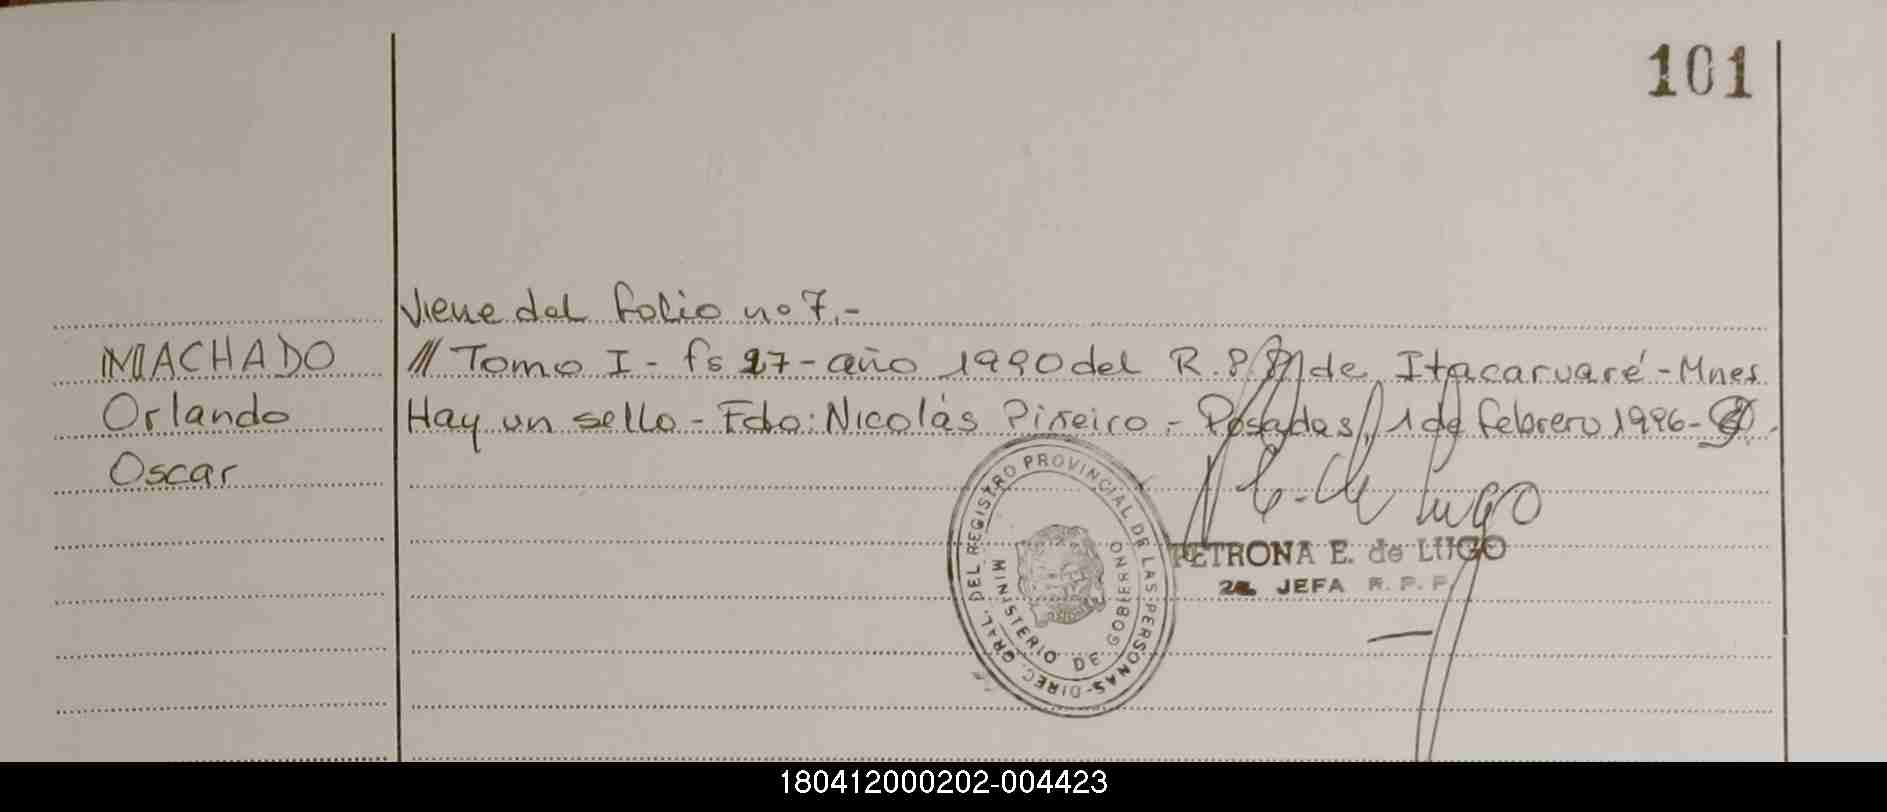 101
Viene del folio nº 7.-
MACHADO
Orlando
Oscar
/// Tomo I - fs 27 - año 1990 del R.P.P. de Itacaruaré - Mnes
Hay un sello - Fdo: Nicolás Piñeiro - Posadas, 1 de febrero 1996 -
E. de Lugo
DIREC. GRAL. DEL REGISTRO PROVINCIAL DE LAS PERSONAS
MINISTERIO DE GOBIERNO
PETRONA E. de LUGO
2a. JEFA R. P. P.
180412000202-004423